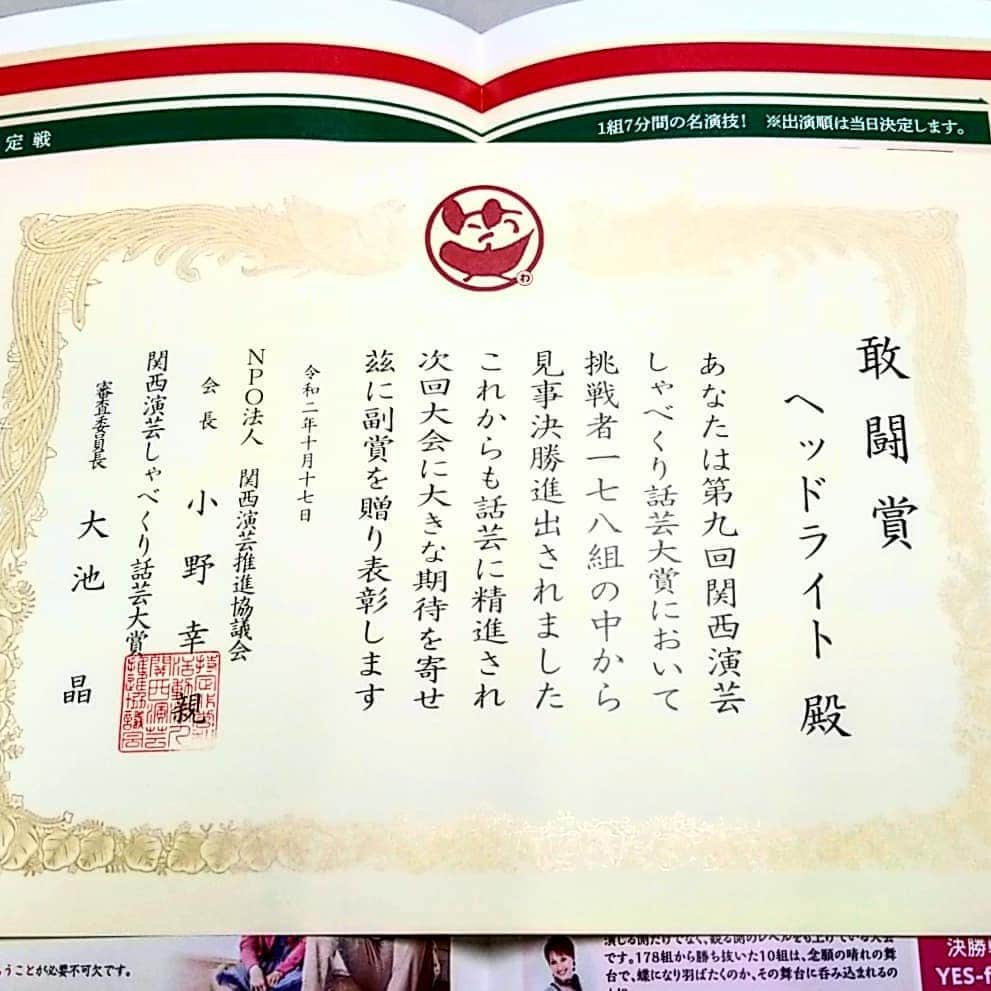 定戦
1組7分間の名演技! ※出演順は当日決定します。
わ
敢闘賞
ヘッドライト 殿
あなたは第九回関西演芸
しゃべくり話芸大賞において
挑戦者一七八組の中から
見事決勝進出されました
これからも話芸に精進され
次回大会に大きな期待を寄せ
茲に副賞を贈り表彰します
令和二年十月十七日
NPO法人 関西演芸推進協議会
会長 小野幸親
関西演芸しゃべくり話芸大賞
審査委員長 大池晶
うことが必要不可欠です。
演じる側だけでなく、観る側のレベルをも上げている大会
です。178組から勝ち抜いた10組は、念願の晴れの舞
台で、蝶になり羽ばたくのか、その舞台に呑み込まれるの
決勝
YES-f